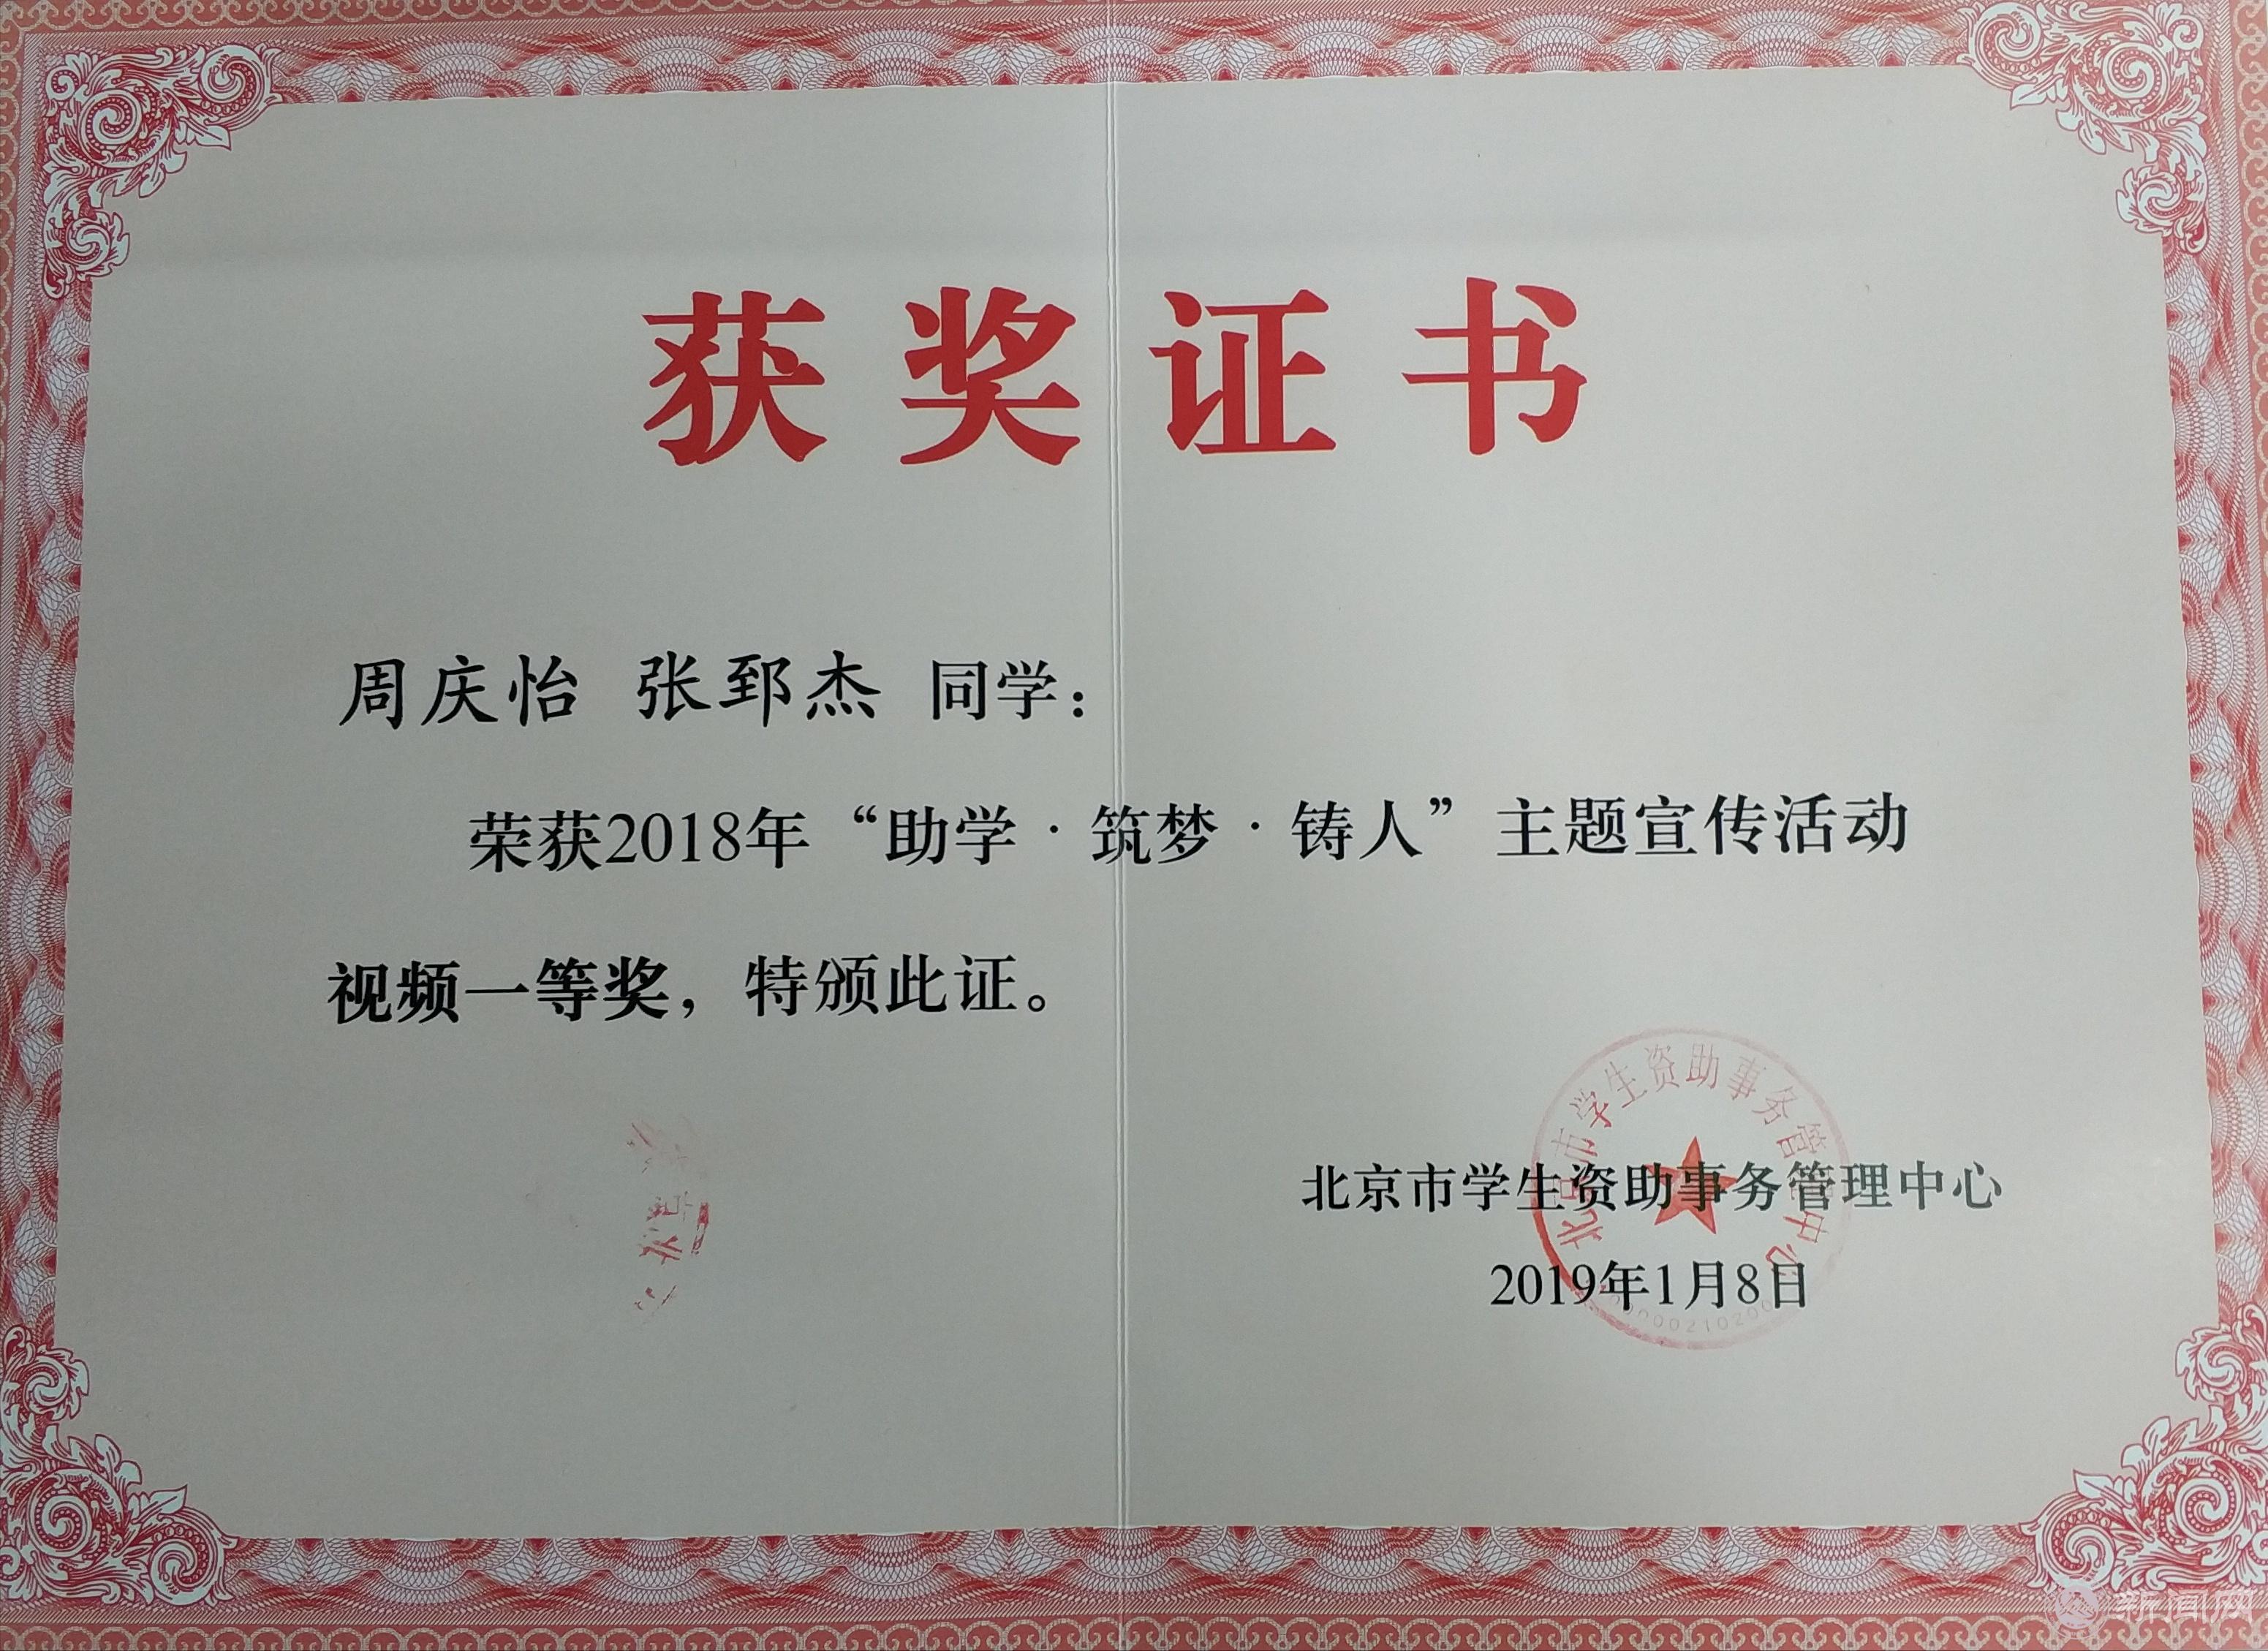 获奖证书
周庆怡 张郅杰 同学：
荣获2018年“助学·筑梦·铸人”主题宣传活动
视频一等奖，特颁此证。
北京市学生资助事务管理中心
北京市学生资助事务管理中心
2019年1月8日
新闻网